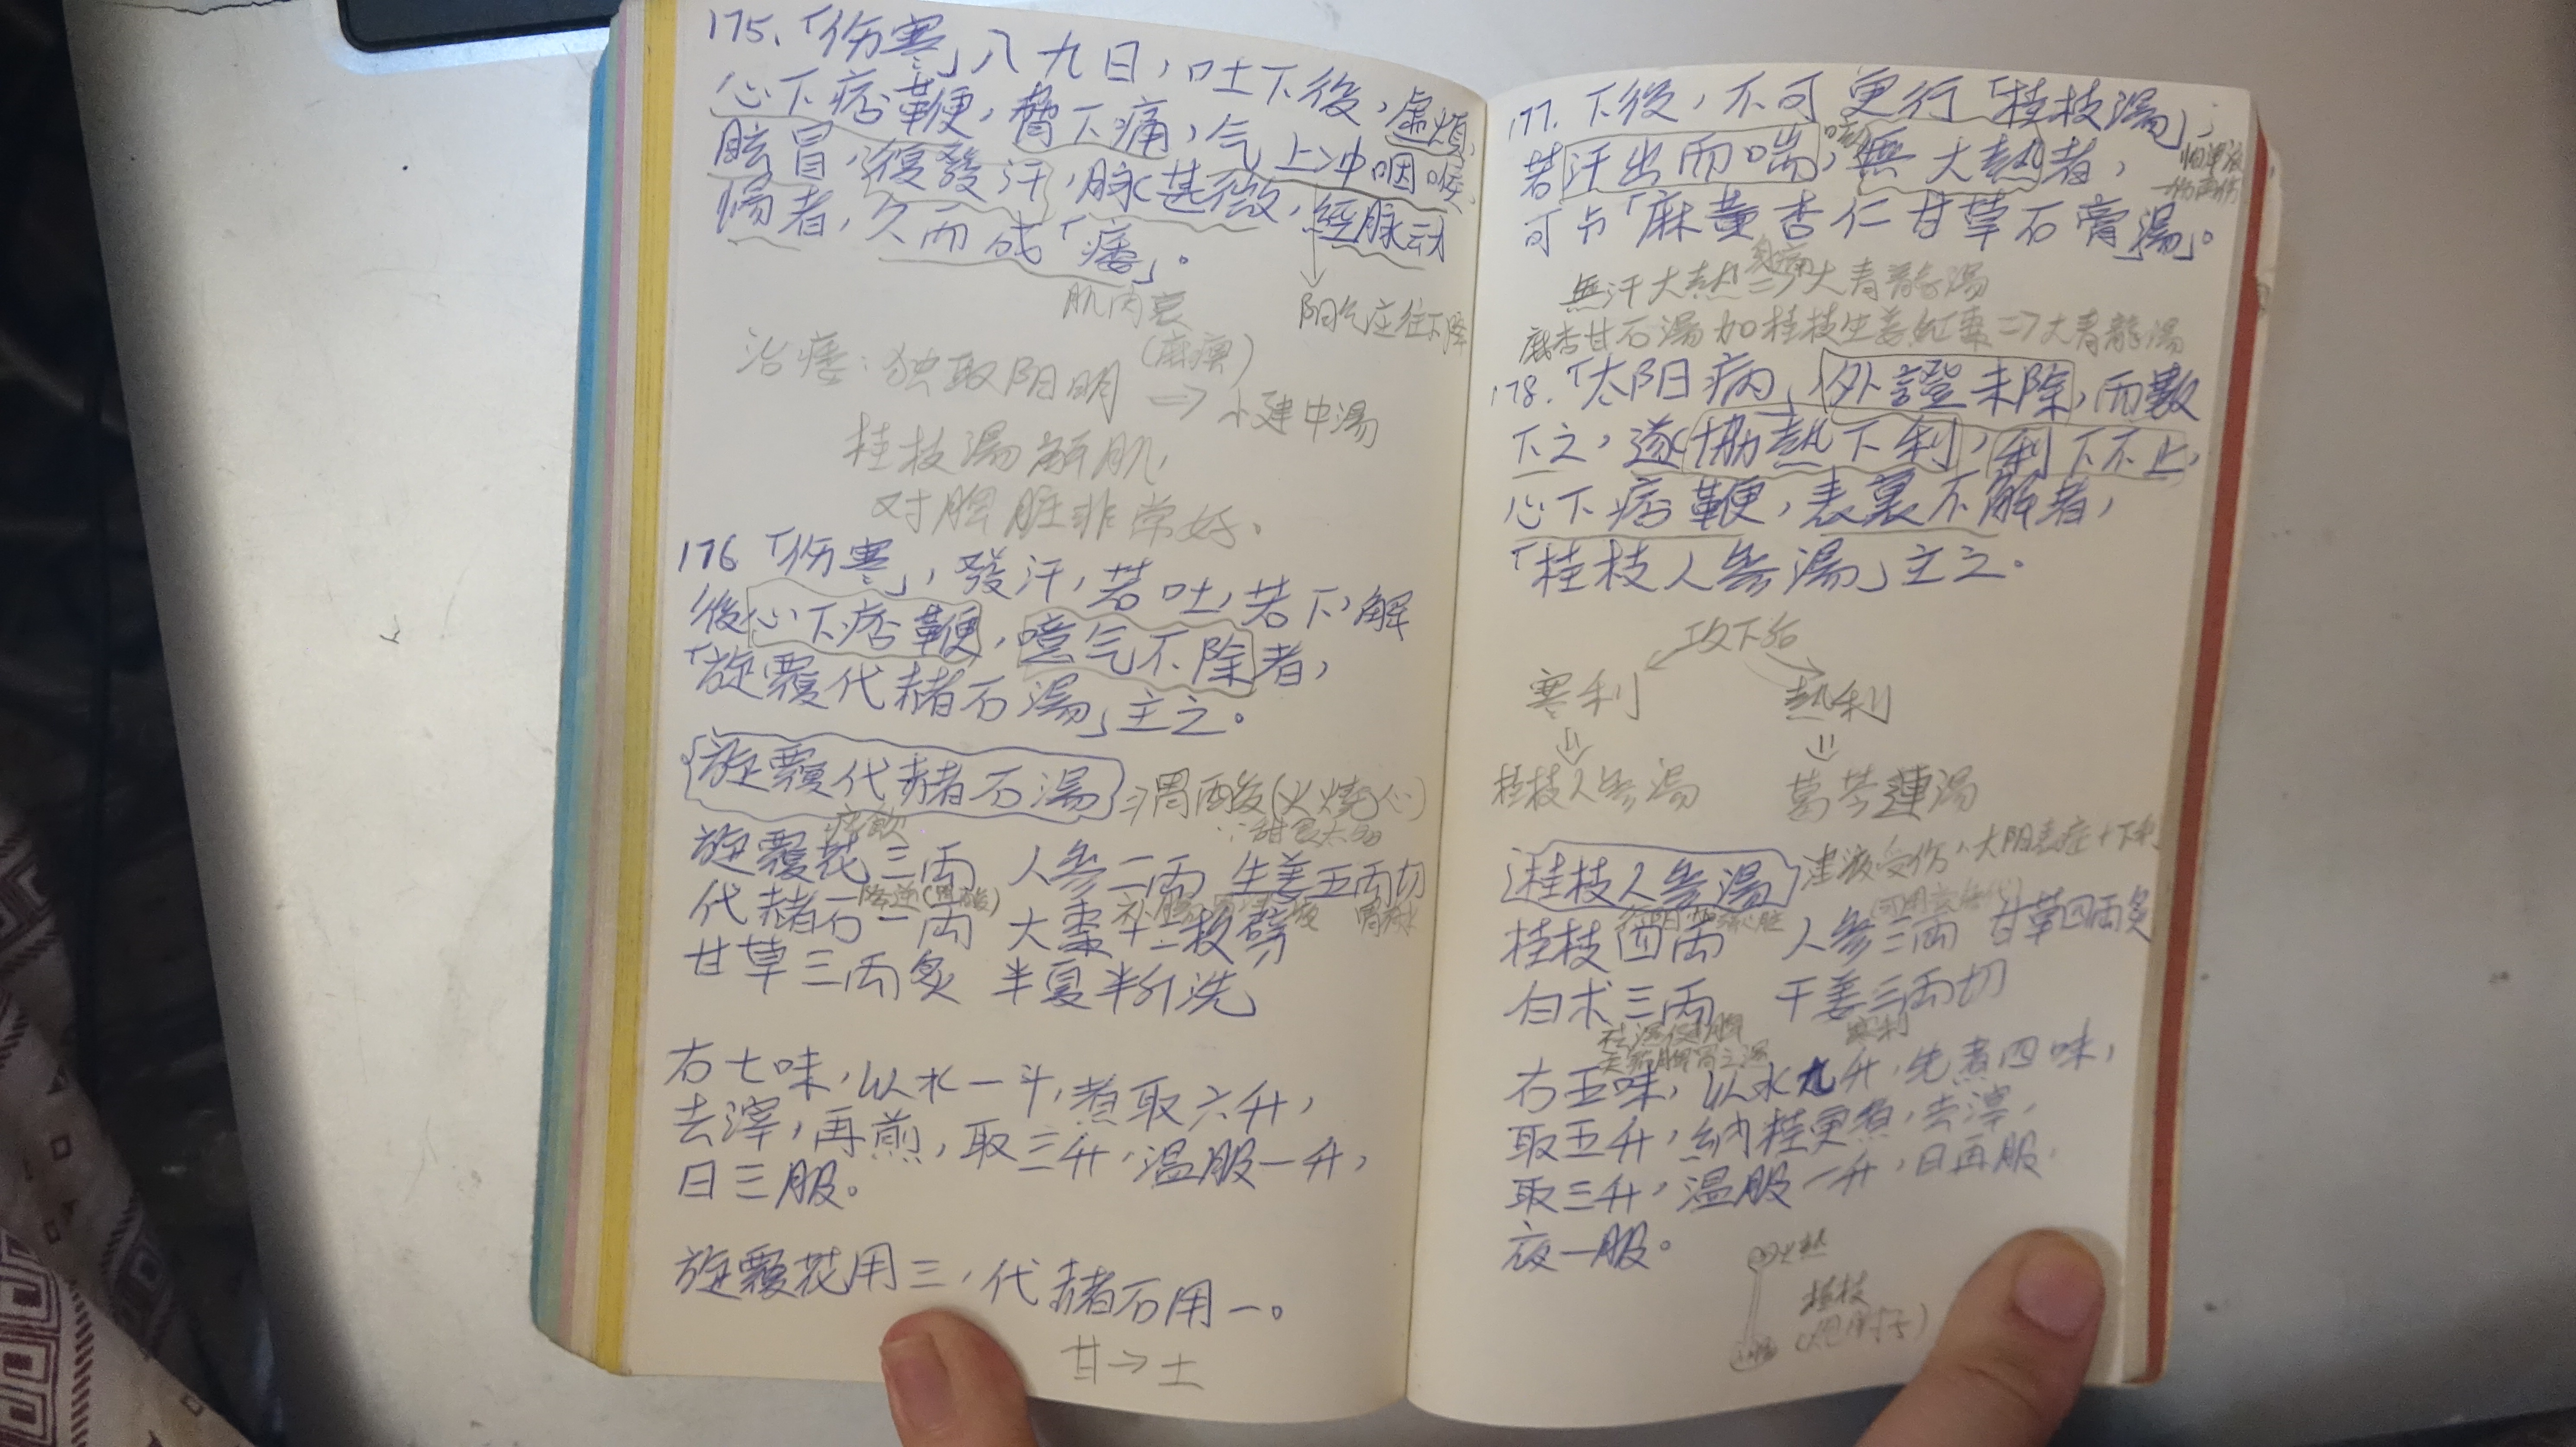 175.「伤寒」八九日，吐下後，虚煩，
心下痞鞕，脅下痛，气上冲咽喉，
眩冒，復發汗，脉甚微，經脉动
惕者，久而成「痿」。
肌肉衰
阳气应往下降
治痿：独取阳明
⇒小建中湯
桂枝湯解肌，
对脾脏非常好。
176「伤寒」，發汗，若吐，若下，解
後心下痞鞕，噫气不除者，
「旋覆代赭石湯」主之。
旋覆代赭石湯 ⇒胃酸(火燒心)
∵甜食太多
痰飲
旋覆花三两 人參二两 生姜五两切
降逆(胃酸)
代赭石一两 大棗十二枚劈
甘草三两炙 半夏半升洗
右七味，以水一斗，煮取六升，
去滓，再煎，取三升，温服一升，
日三服。
旋覆花用三，代赭石用一。
甘→土
177.下後，不可更行「桂枝湯」，
若汗出而喘，無大熱者，
怕津液
可与「麻黄杏仁甘草石膏湯」。
身痛
無汗大熱⇒大青龍湯
麻杏甘石湯加桂枝生姜紅棗⇒大青龍湯
178.「太阳病」，外證未除，而數
下之，遂協熱下利，利下不止，
心下痞鞕，表裏不解者，
「桂枝人參湯」主之。
攻下后
寒利 熱利
⇓ ⇓
桂枝人參湯 葛芩連湯
桂枝人參湯 津液受伤，太阳表症+下利
桂枝四两 人參三两 甘草四两炙
白术三两 干姜三两切
寒利
右五味，以水九升，先煮四味，
取五升，納桂更煮，去滓，
取三升，温服一升，日再服，
夜一服。
桂枝
(炮附子)